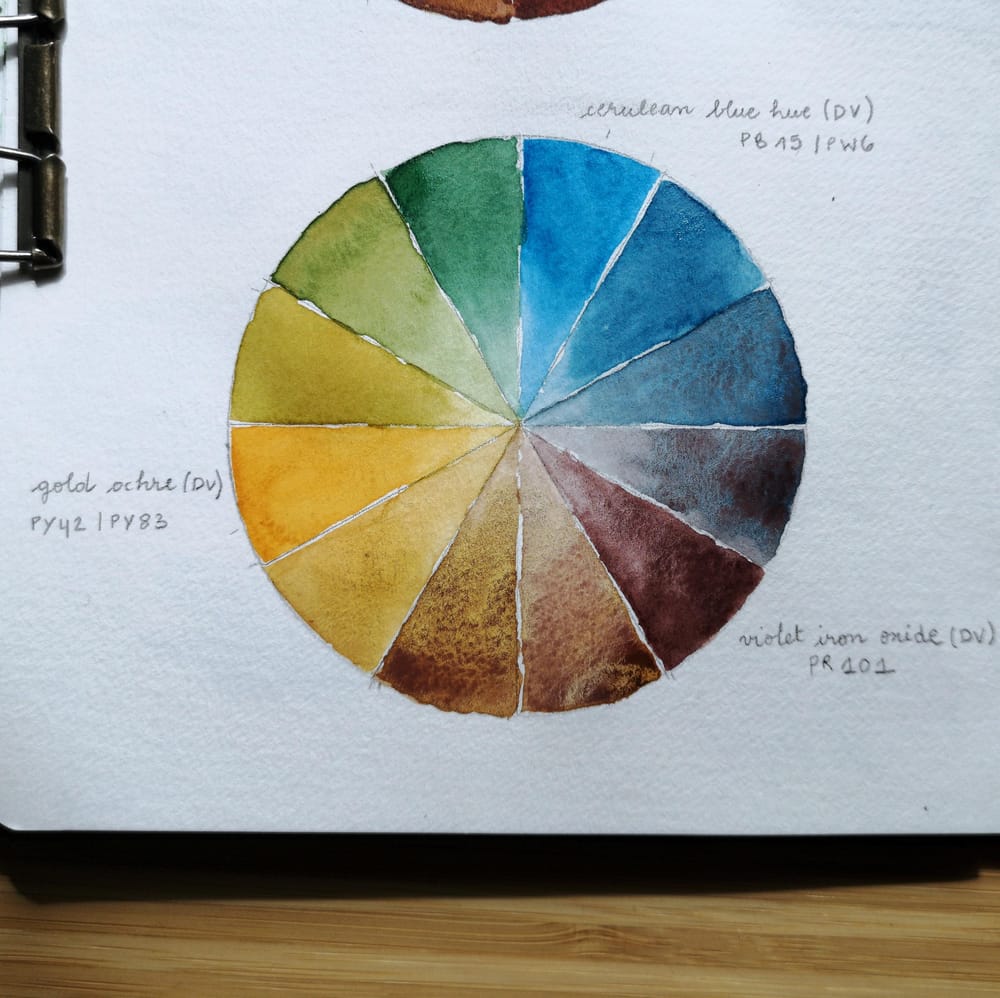 cerulean blue hue (DV)
PB 15 | PW6
gold ochre (DV)
PY42 | PY83
violet iron oxide (DV)
PR 101